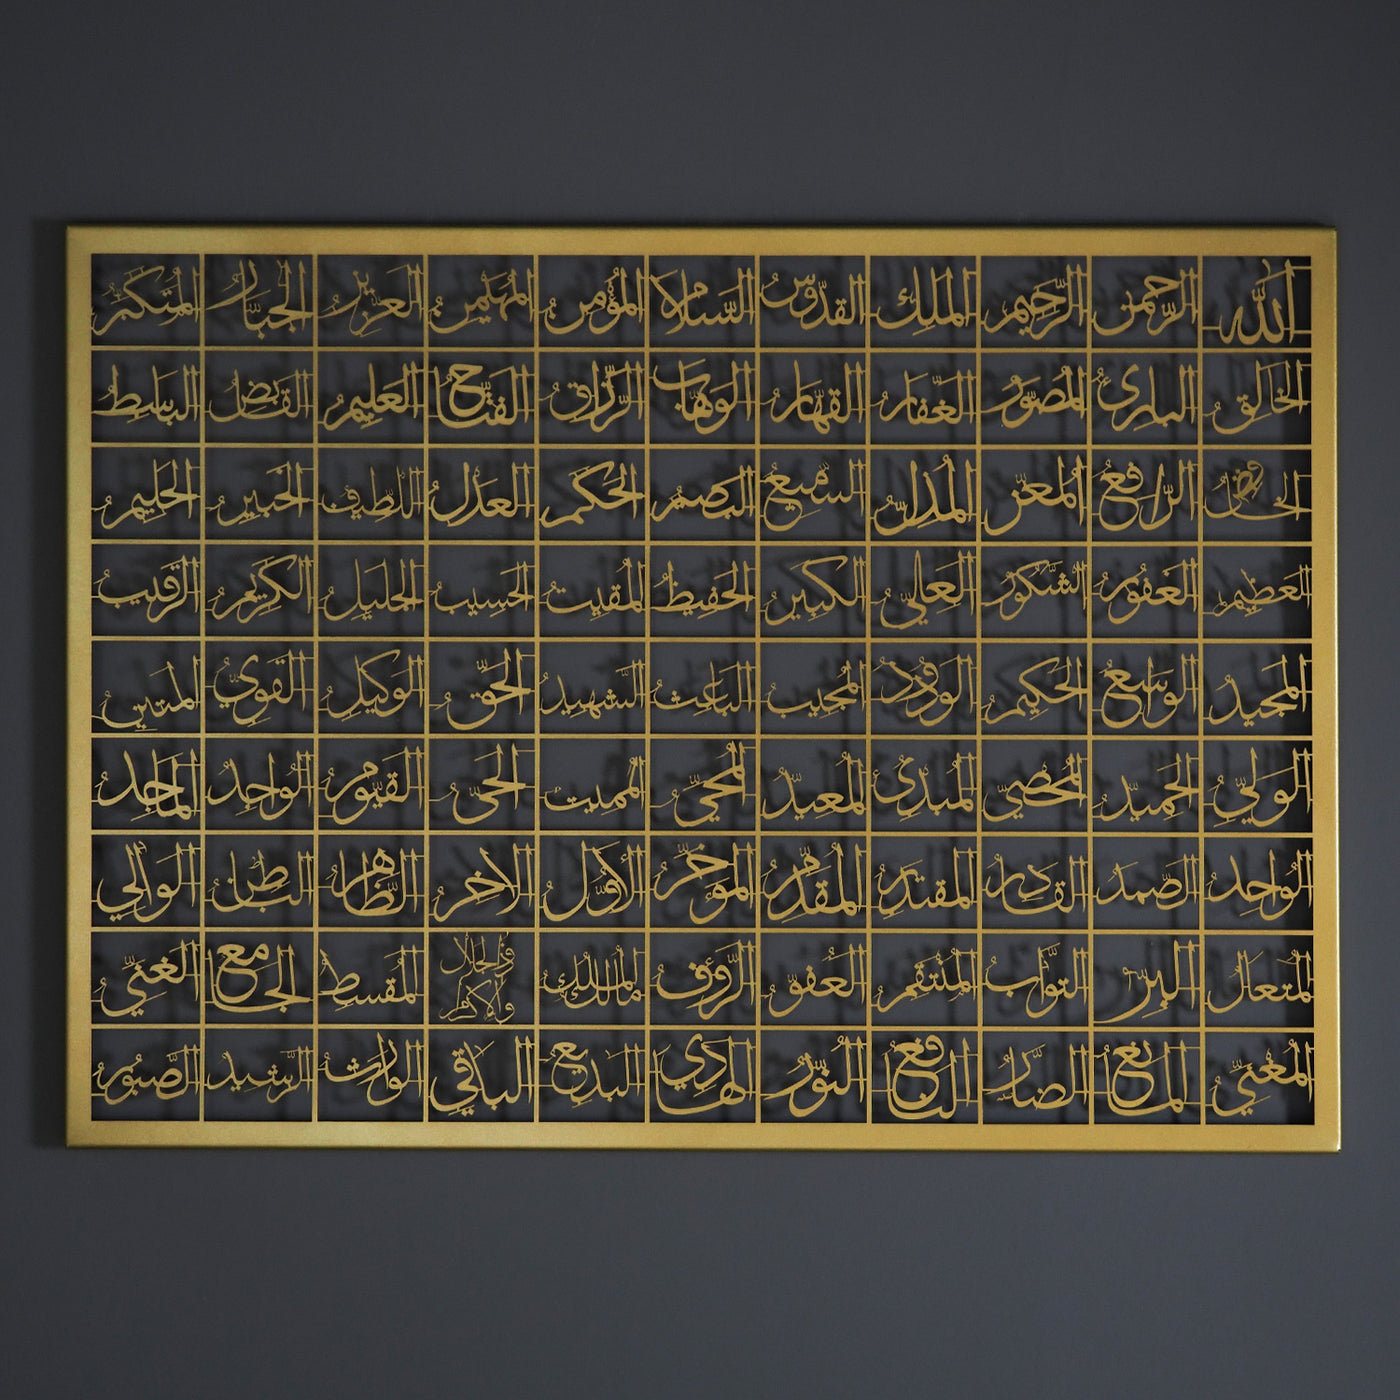 الله الرحمن الرحيم الملك القدوس السلام المؤمن المهيمن العزيز الجبار المتكبر
الخالق البارئ المصور الغفار القهار الوهاب الرزاق الفتاح العليم القابض الباسط
الخافض الرافع المعز المذل السميع البصير الحكم العدل اللطيف الخبير الحليم
العظيم الغفور الشكور العلي الكبير الحفيظ المقيت الحسيب الجليل الكريم الرقيب
المجيد الواسع الحكيم الودود المجيب الباعث الشهيد الحق الوكيل القوي المتين
الولي الحميد المحصي المبدئ المعيد المحيي المميت الحي القيوم الواجد الماجد
الواحد الصمد القادر المقتدر المقدم المؤخر الأول الآخر الظاهر الباطن الوالي
المتعال البر التواب المنتقم العفو الرؤوف مالك الملك ذو الجلال والإكرام المقسط الجامع الغني
المغني المانع الضار النافع النور الهادي البديع الباقي الوارث الرشيد الصبور